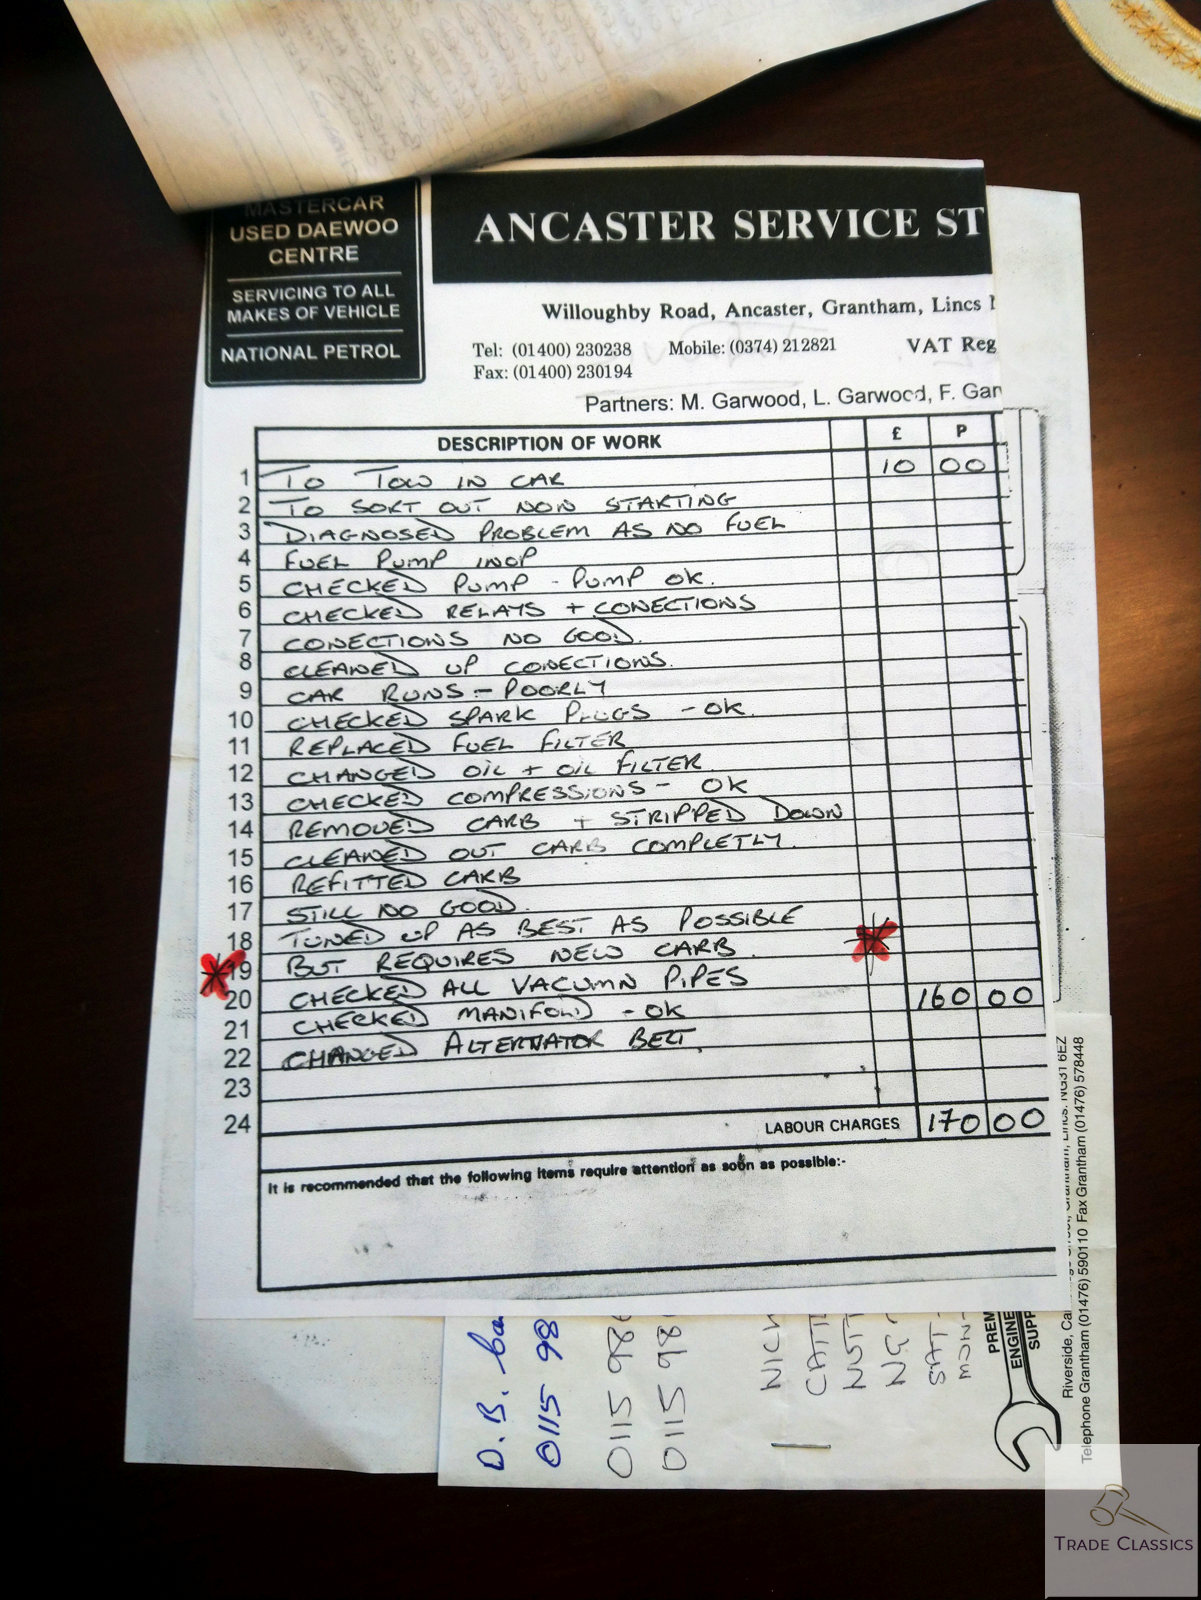 MASTERCAR
USED DAEWOO
CENTRE
SERVICING TO ALL
MAKES OF VEHICLE
NATIONAL PETROL
ANCASTER SERVICE ST
Willoughby Road, Ancaster, Grantham, Lincs
Tel: (01400) 230238 Mobile: (0374) 212821 VAT Reg
Fax: (01400) 230194
Partners: M. Garwood, L. Garwood, F. Gar
DESCRIPTION OF WORK £ P
1 TO TOW IN CAR 10 00
2 TO SORT OUT NON STARTING
3 DIAGNOSED PROBLEM AS NO FUEL
4 FUEL PUMP INOP
5 CHECKED PUMP - PUMP OK.
6 CHECKED RELAYS + CONECTIONS
7 CONECTIONS NO GOOD.
8 CLEANED UP CONECTIONS.
9 CAR RUNS - POORLY
10 CHECKED SPARK PLUGS - OK.
11 REPLACED FUEL FILTER
12 CHANGED OIL + OIL FILTER
13 CHECKED COMPRESSIONS - OK
14 REMOVED CARB + STRIPPED DOWN
15 CLEANED OUT CARB COMPLETLY.
16 REFITTED CARB
17 STILL NO GOOD.
18 TUNED UP AS BEST AS POSSIBLE
19 BUT REQUIRES NEW CARB.
20 CHECKED ALL VACUMN PIPES 160 00
21 CHECKED MANIFOLD - OK
22 CHANGED ALTERNATOR BELT.
23
24 LABOUR CHARGES 170 00
It is recommended that the following items require attention as soon as possible:-
D.B.
0115 98
0115 986
0115 98
NICK
NG
SAT-
PREM
ENGINE
SUPP
Riverside, Grantham, Lincs. NG31 6EZ
Telephone Grantham (01476) 590110 Fax Grantham (01476) 578448
TRADE CLASSICS